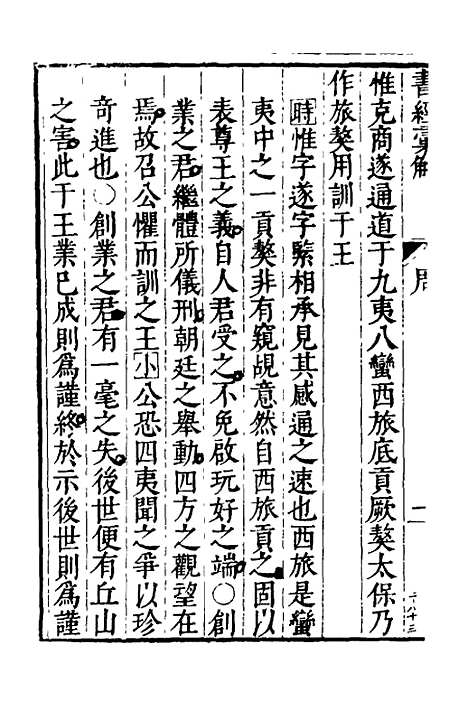 書經
周
二
惟克商遂通道于九夷八蠻西旅底貢厥獒太保乃
作旅獒用訓于王
時惟字遂字緊相承見其感通之速也西旅是蠻
夷中之一貢獒非有窺覘意然自西旅貢之固以
表尊王之義自人君受之不免啟玩好之端○創
業之君繼體所儀刑朝廷之舉動四方之觀望在
焉故召公懼而訓之王小公恐四夷聞之爭以珍
奇進也○創業之君有一毫之失後世便有丘山
之害此于王業已成則爲謹終於示後世則爲謹